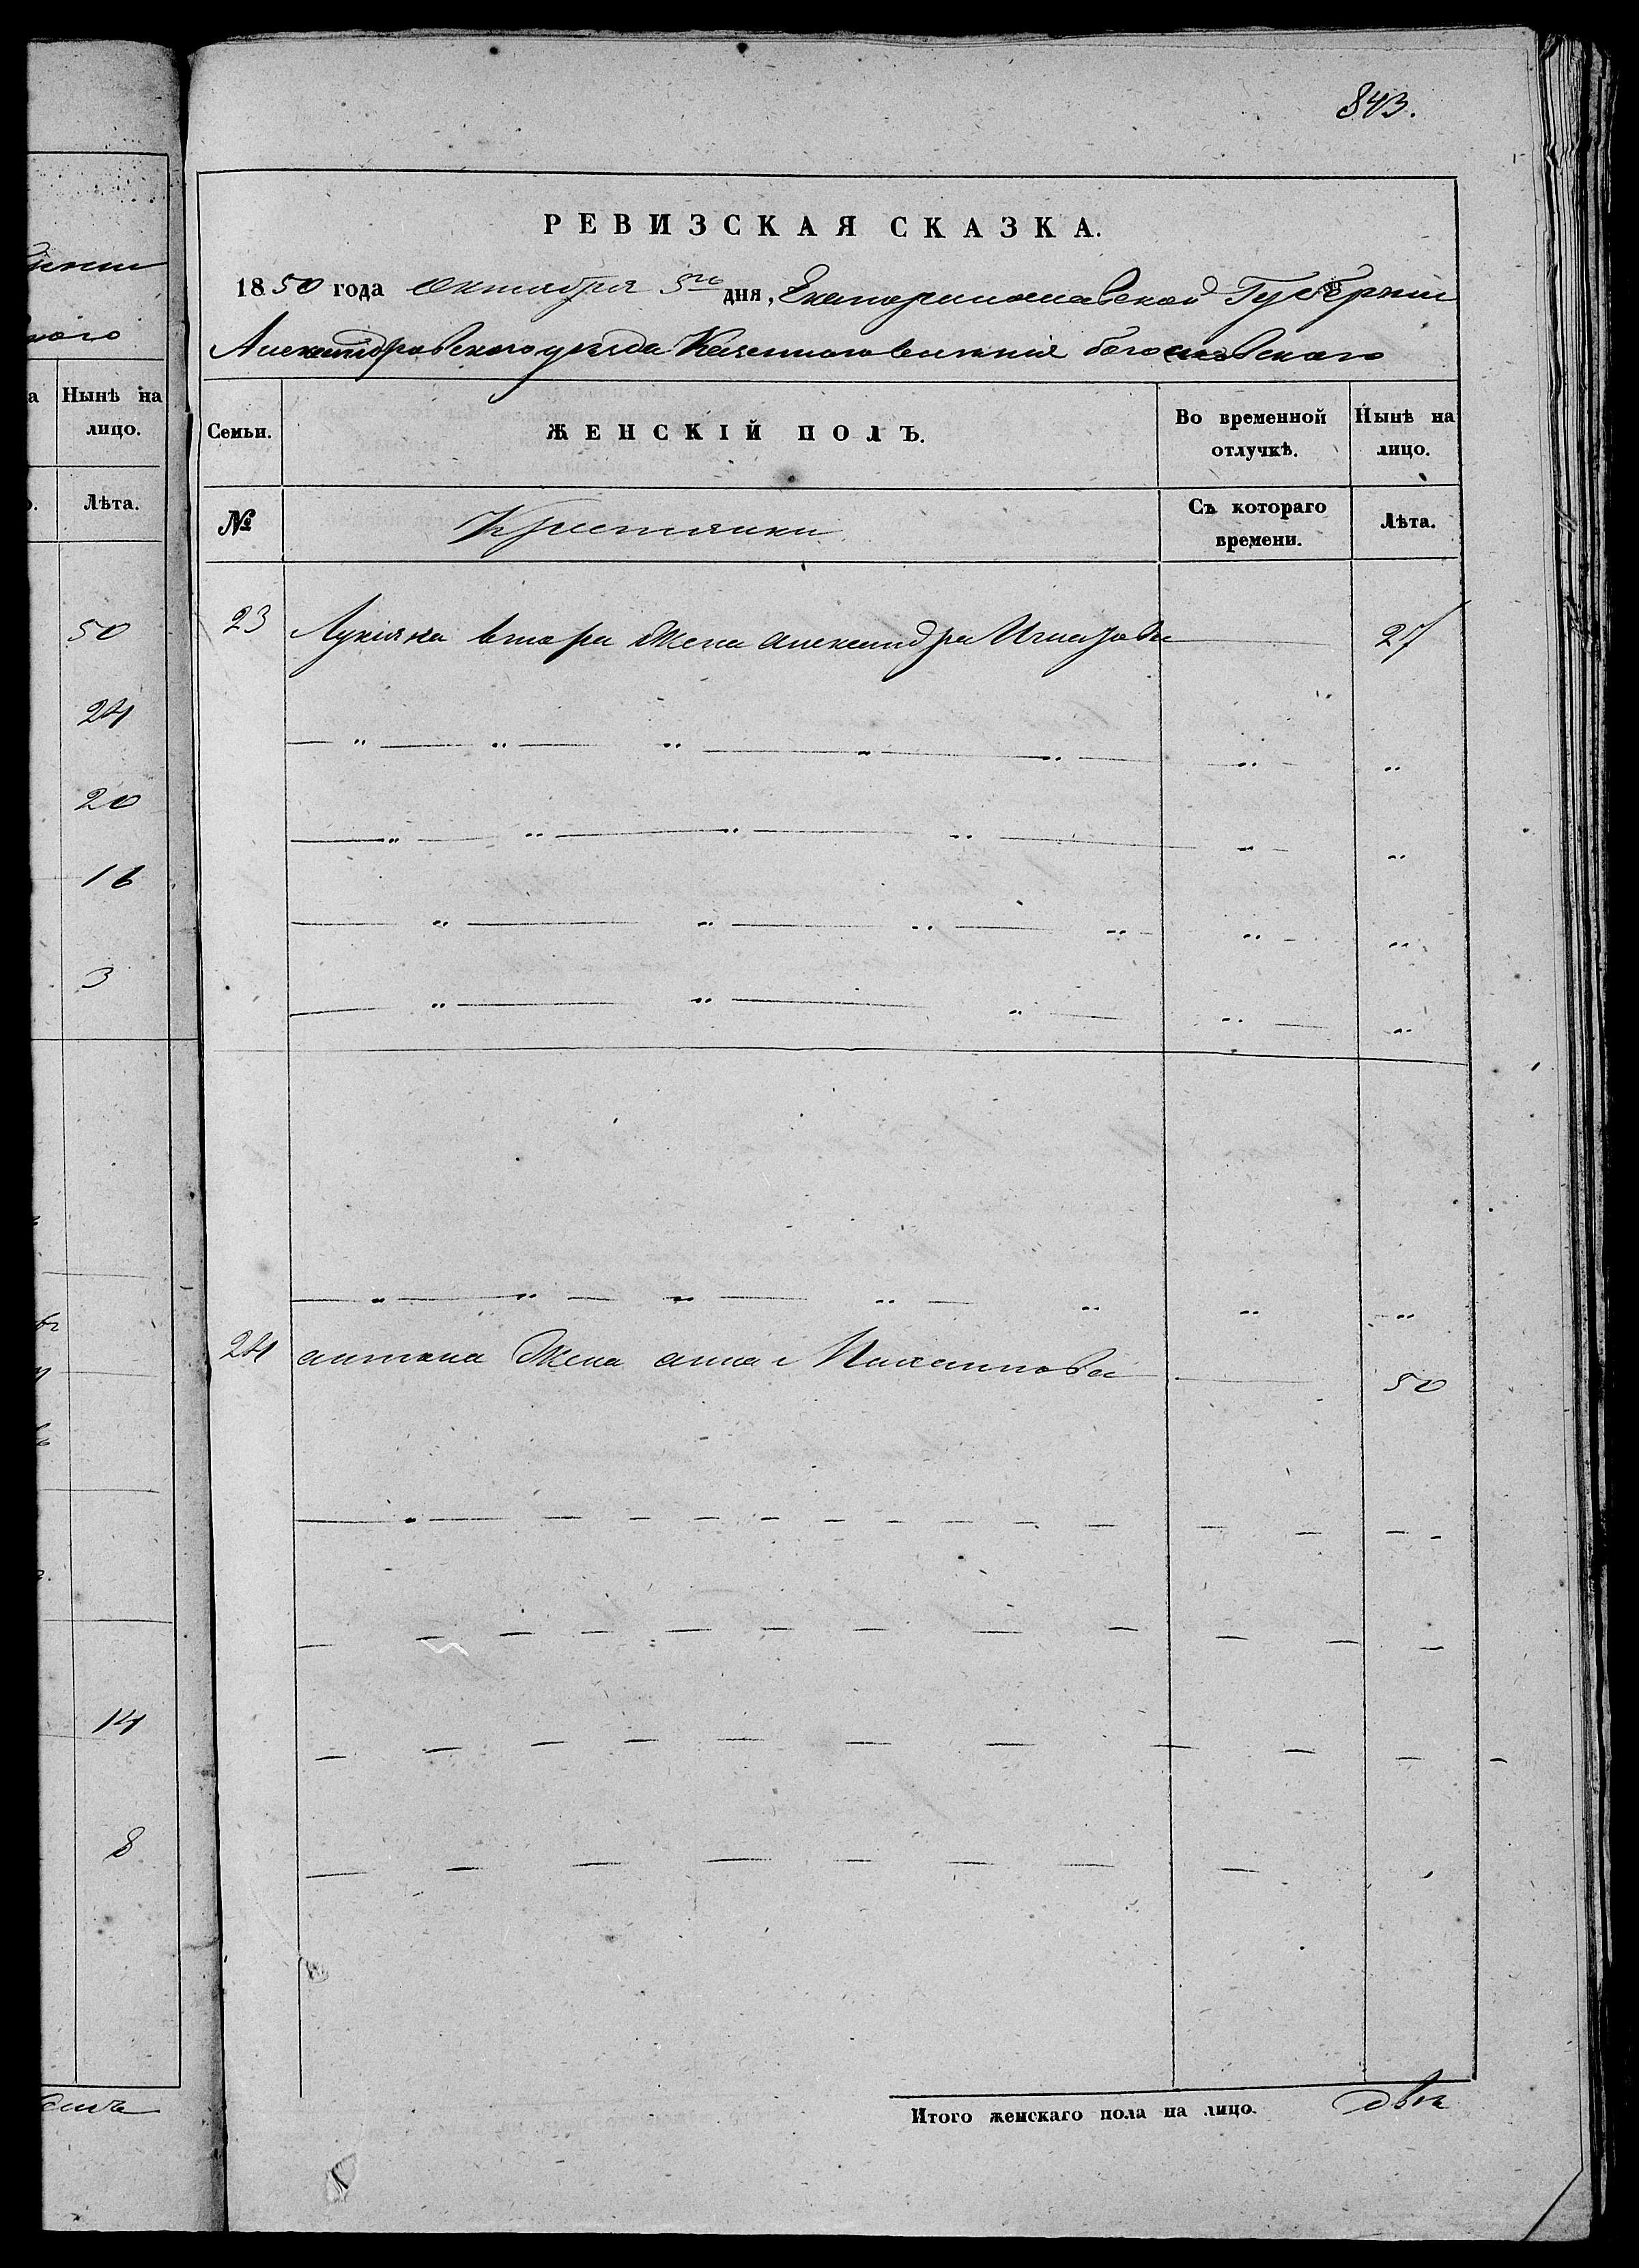 843.
РЕВИЗСКАЯ СКАЗКА.
1850 года Октября 5го дня, Екатеринославской Губерніи
Александровского уезда Казенного селенія
Нынѣ на лицо.
Семьи. ЖЕНСКІЙ ПОЛЪ. Во временной отлучкѣ. Нынѣ на лицо.
Лѣта.
№ Крестянки Съ котораго времени. Лѣта.
50
24
20
16
3
14
8
23 Лукіяна втора жена александра 27
24 антона жена анна 50
Итого женскаго пола на лицо. две